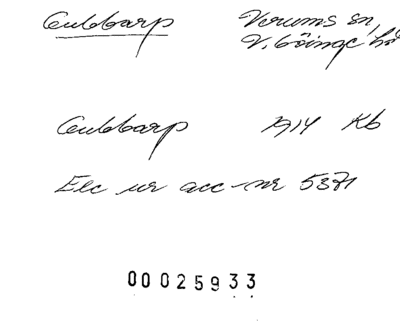 Gubbarp Verums sn,
V. Göinge hd
Gubbarp 1914 Kb
Exc ur acc-nr 5371
00025933